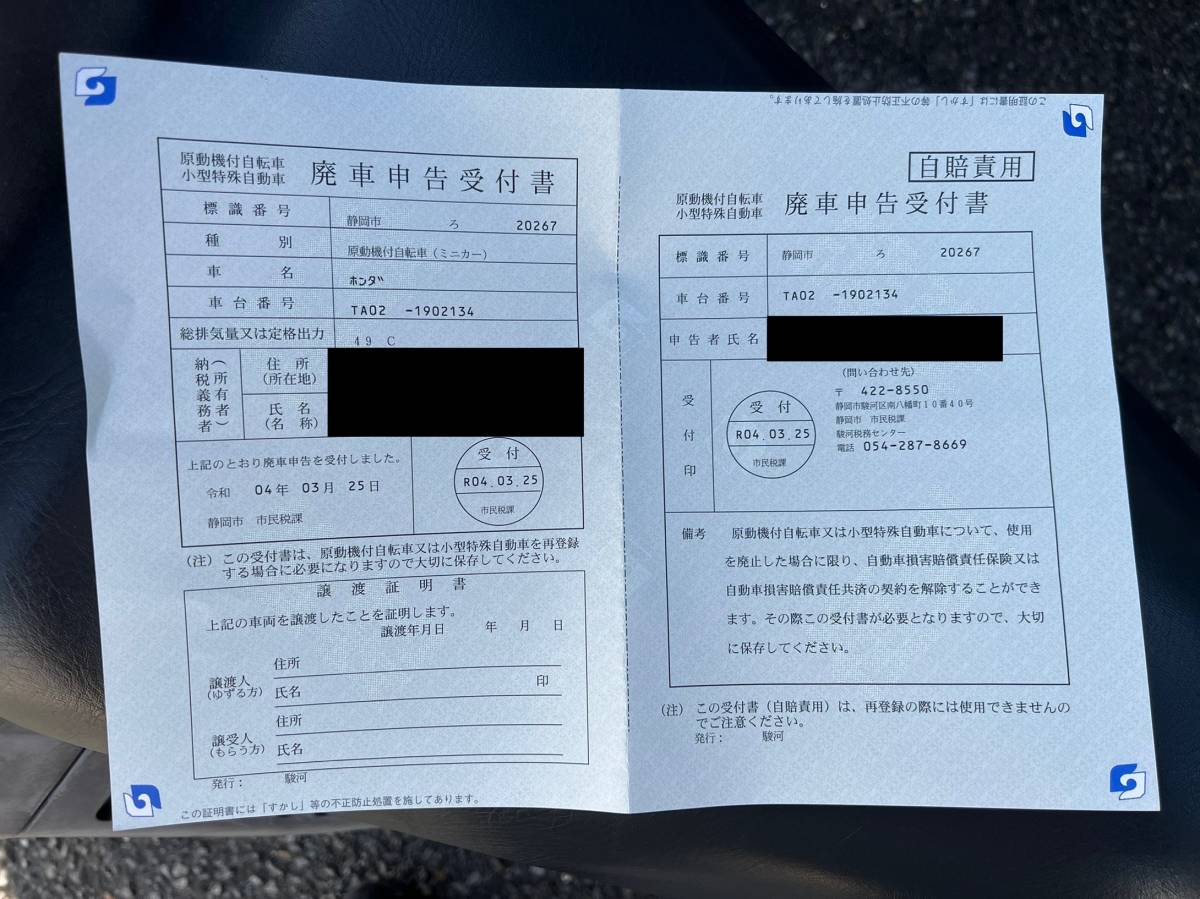 原動機付自転車
小型特殊自動車
廃車申告受付書
標識番号 静岡市 ろ 20267
種別 原動機付自転車(ミニカー)
車名 ホンダ
車台番号 TA02 -1902134
総排気量又は定格出力 49 C
納税義務者(所有者)
住所
(所在地)
氏名
(名称)
上記のとおり廃車申告を受付しました。
令和 04年 03月 25日
静岡市 市民税課
受付
R04.03.25
市民税課
(注) この受付書は、原動機付自転車又は小型特殊自動車を再登録
する場合に必要になりますので大切に保存してください。
譲渡証明書
上記の車両を譲渡したことを証明します。
譲渡年月日 年 月 日
譲渡人
(ゆずる方)
住所
氏名 印
譲受人
(もらう方)
住所
氏名
発行: 駿河
この証明書には「すかし」等の不正防止処置を施してあります。
この証明書には「すかし」等の不正防止処置を施してあります。
自賠責用
原動機付自転車
小型特殊自動車
廃車申告受付書
標識番号 静岡市 ろ 20267
車台番号 TA02 -1902134
申告者氏名
受付印
受付
R04.03.25
市民税課
(問い合わせ先)
〒 422-8550
静岡市駿河区南八幡町10番40号
静岡市 市民税課
駿河税務センター
電話 054-287-8669
備考 原動機付自転車又は小型特殊自動車について、使用
を廃止した場合に限り、自動車損害賠償責任保険又は
自動車損害賠償責任共済の契約を解除することができ
ます。その際この受付書が必要となりますので、大切
に保存してください。
(注) この受付書(自賠責用)は、再登録の際には使用できませんの
でご注意ください。
発行: 駿河